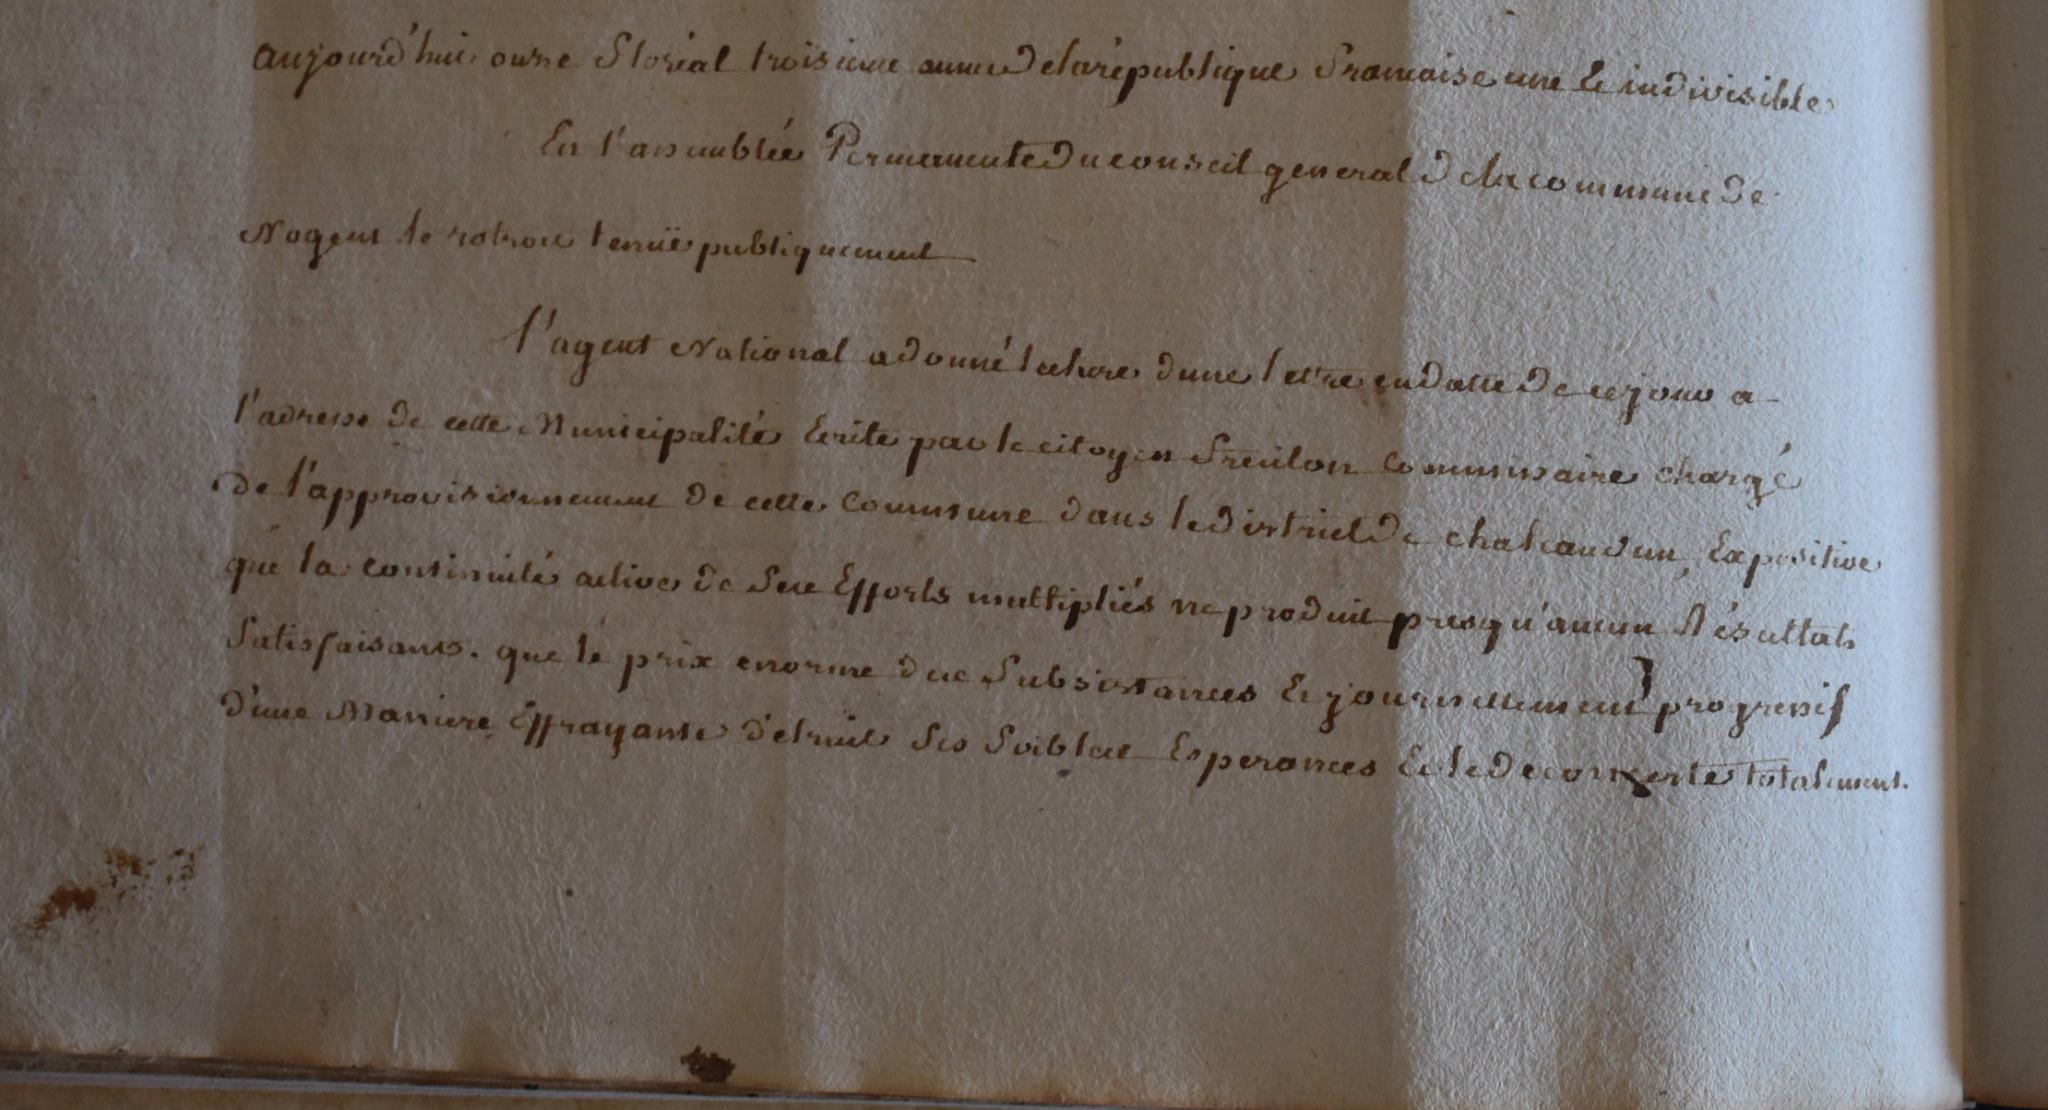 aujourd'hui onze floréal troisieme année de la république francaise une & indivisible
En l'assemblée Permanente du conseil general de la commune de
Nogent le rotrou tenüe publiquement
l'agent National a donné lecture dune lettre en datte de ce jour a
l'adresse de cette Municipalité Ecrite par le citoyen commissaire chargé
de l'approvisionnement de cette Commune dans le district de chateaudun, Expositive
que la continuité active de ses Efforts multipliés ne produit presqu'aucun Résultats
satisfaisants. que le prix enorme des subsistances & journellement progressif
d'une Maniere Effrayante détruit ses foibles Esperances & le deconcerte totalement.